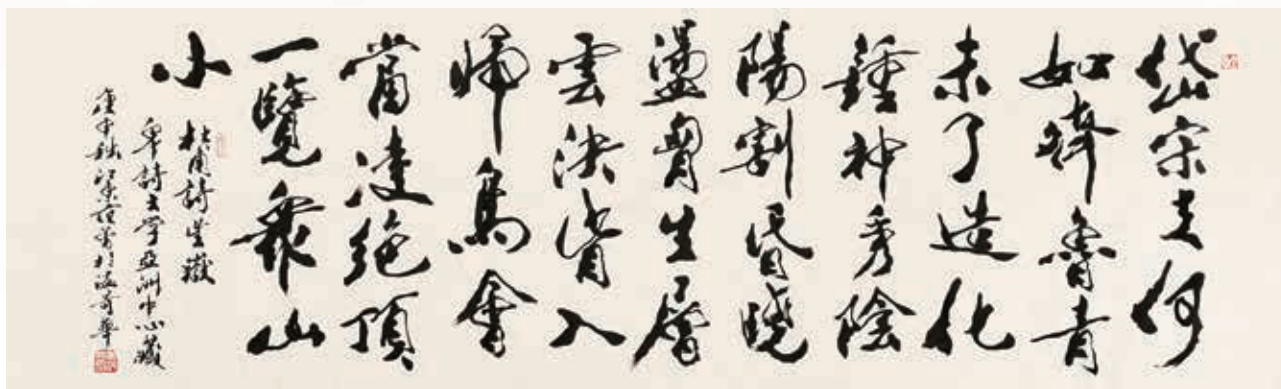 岱宗夫何
如齊魯青
未了造化
鍾神秀陰
陽割昏曉
盪胷生層
雲決眥入
歸鳥會
當凌絕頂
一覽眾山
小
杜甫詩望嶽
卑詩大學亞洲中心藏
庚申秋書於溫哥華